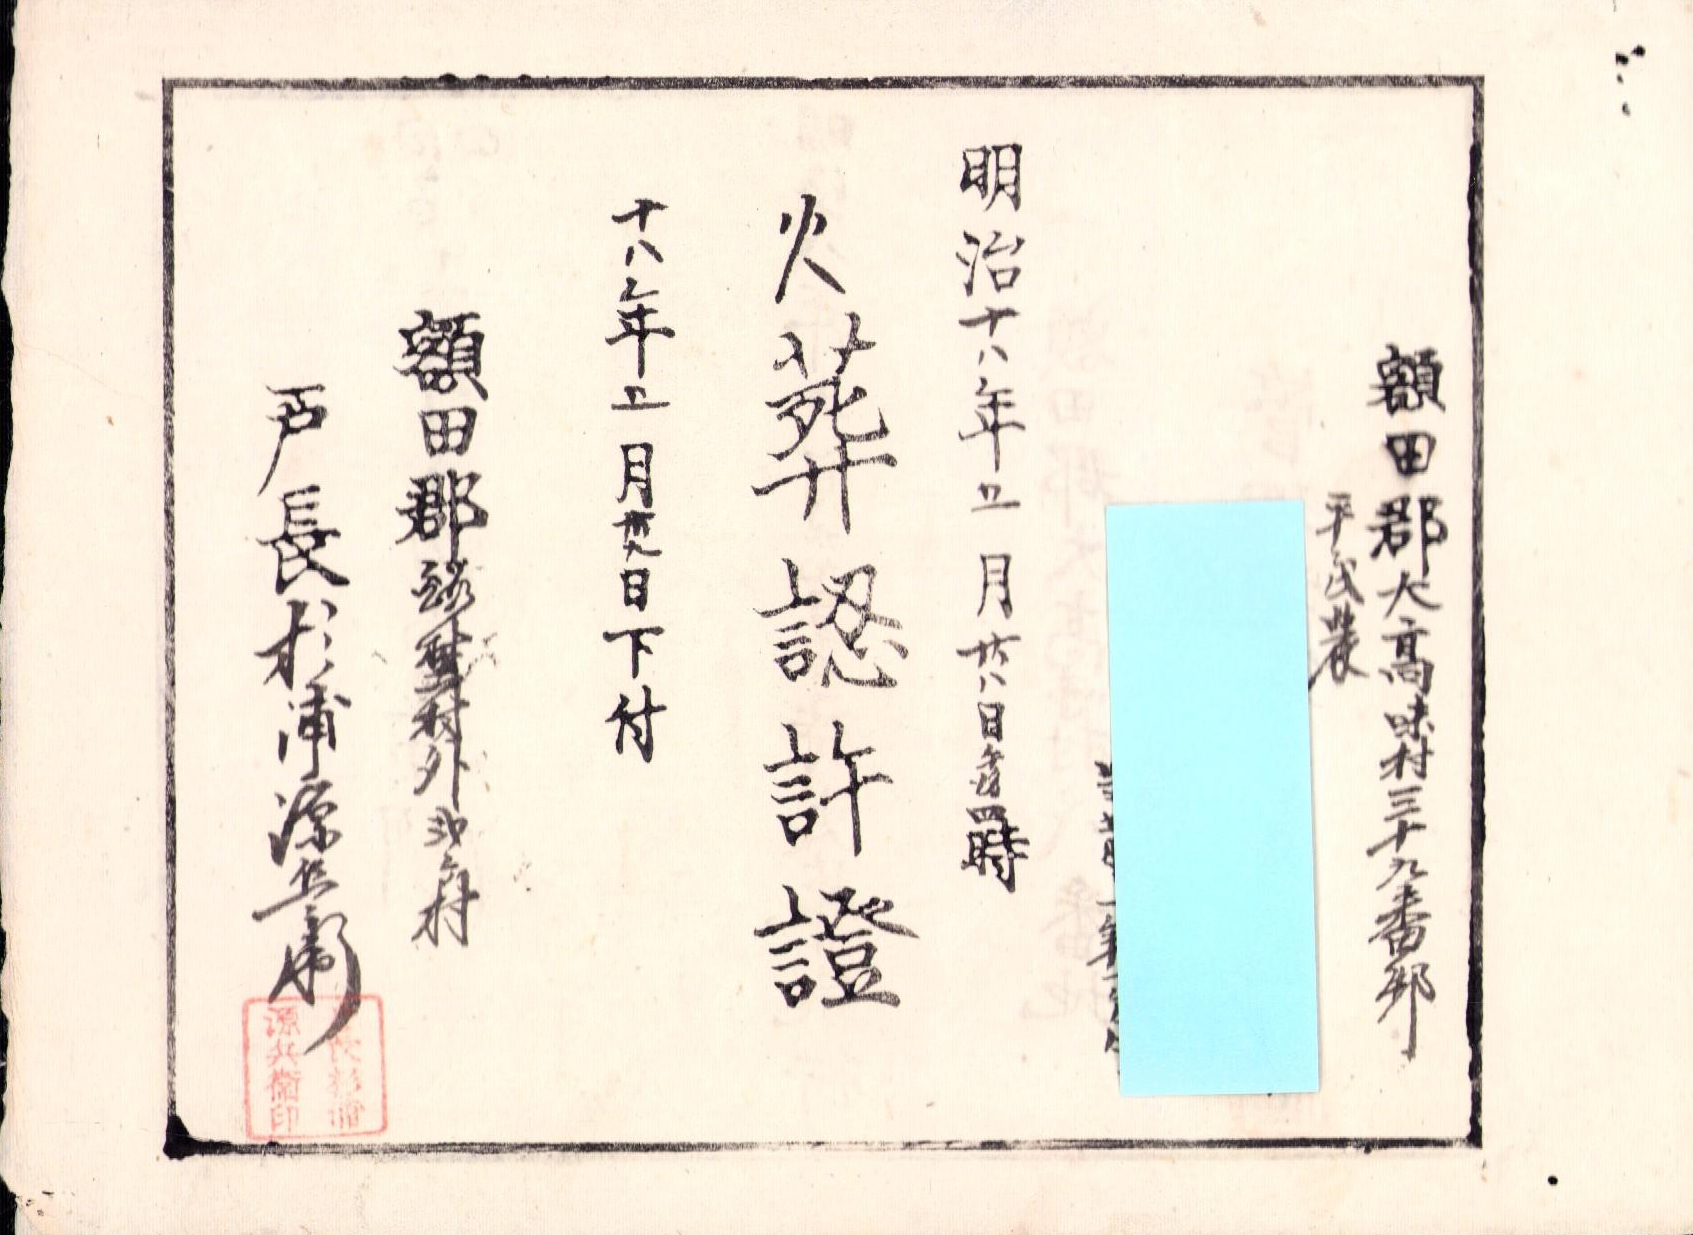 額田郡大高味村三十九番邸
平民農
明治十八年五月廿八日午后四時
火葬認許證
十八年五月廿九日下付
額田郡 村外 村
戸長杉浦源兵衛
戸長杉浦
源兵衛印